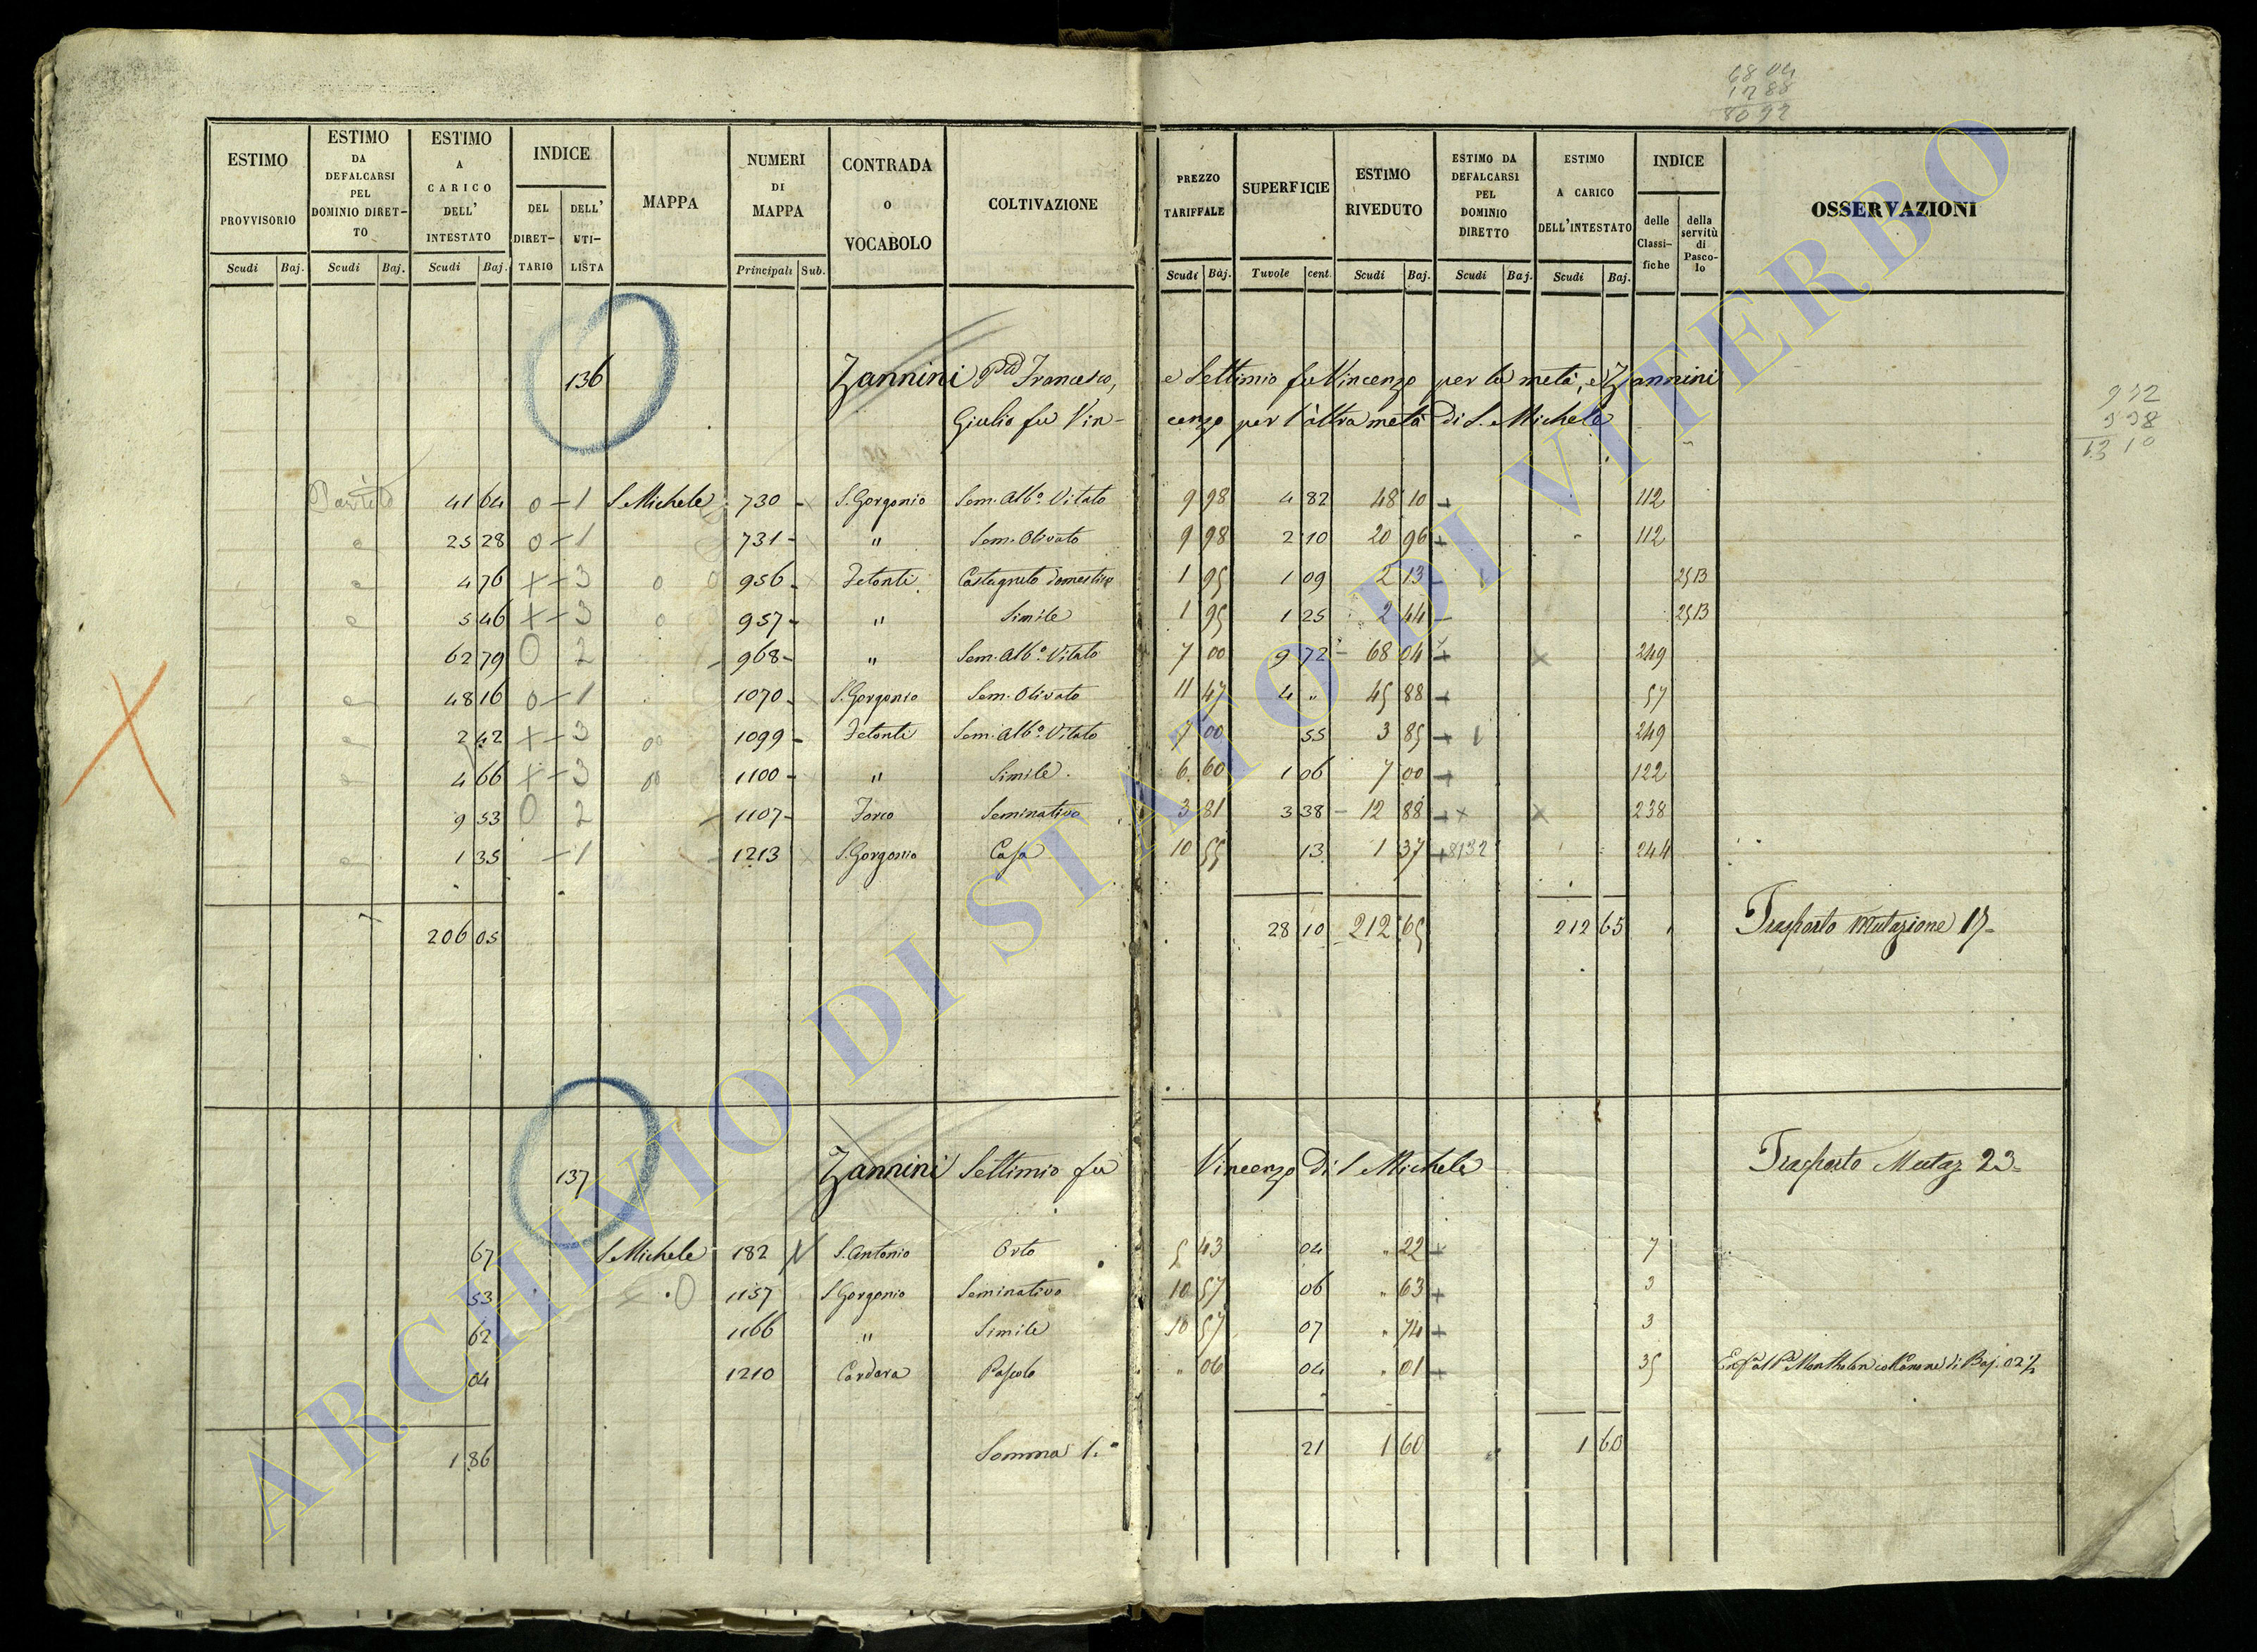 68 04
12 88
80 92
ESTIMO PROVVISORIO | ESTIMO DA DEFALCARSI PEL DOMINIO DIRET-TO | ESTIMO A CARICO DELL' INTESTATO | INDICE | MAPPA | NUMERI DI MAPPA | CONTRADA o VOCABOLO | COLTIVAZIONE | PREZZO TARIFFALE | SUPERFICIE | ESTIMO RIVEDUTO | ESTIMO DA DEFALCARSI PEL DOMINIO DIRETTO | ESTIMO A CARICO DELL'INTESTATO | INDICE | OSSERVAZIONI
DEL DIRET-TARIO | DELL' UTI-LISTA | delle Classi-fiche | della servitù di Pasco-lo
Scudi Baj. | Scudi Baj. | Scudi Baj. | Principali Sub. | Scudi Baj. | Tuvole cent. | Scudi Baj. | Scudi Baj. | Scudi Baj.
136 Zannini Francesco, e Settimio fu Vincenzo per la metà, e Zannini
Giulio fu Vin-cenzo per l'altra metà di S. Michele
9 72
3 38
13 10
41 64 0 - 1 S. Michele 730 S. Gorgonio Sem. Alb.º Vitato 9 98 4 82 48 10 112
25 28 0 - 1 731 " Sem. Olivato 9 98 2 10 20 96 112
4 76 x - 3 0 0 956 Fetonti Castagneto domestico 1 95 1 09 2 13 25 13
5 46 x - 3 0 957 " Simile 1 95 1 25 2 44 25 13
62 79 0 2 968 " Sem. Alb.º Vitato 7 00 9 72 68 04 x 249
48 16 0 - 1 1070 S. Gorgonio Sem. Olivato 11 47 4 " 45 88 57
2 42 x - 3 00 1099 Fetonti Sem. Alb.º Vitato 7 00 55 3 85 249
4 66 x - 3 00 1100 " Simile 6 60 1 06 7 00 122
9 53 0 2 1107 Seminativo 3 81 3 38 12 88 x x 238
1 35 - 1 1213 S. Gorgonio Casa 10 55 13 1 37 8132 244
206 05 28 10 212 65 212 65 Trasporto Mutazione 17
137 Zannini Settimio fu Vincenzo di S. Michele Trasporto Mutaz 23
67 S. Michele 182 S. Antonio Orto 5 43 04 " 22 7
53 0 1157 S. Gorgonio Seminativo 10 57 06 " 63 3
62 1166 " Simile 10 57 07 " 74 3
04 1210 Cardara Pascolo " 06 04 " 01 35 Monthelon col Canone di Baj. 02½
1 86 Somma 1.ª 21 1 60 1 60
ARCHIVIO DI STATO DI VITERBO